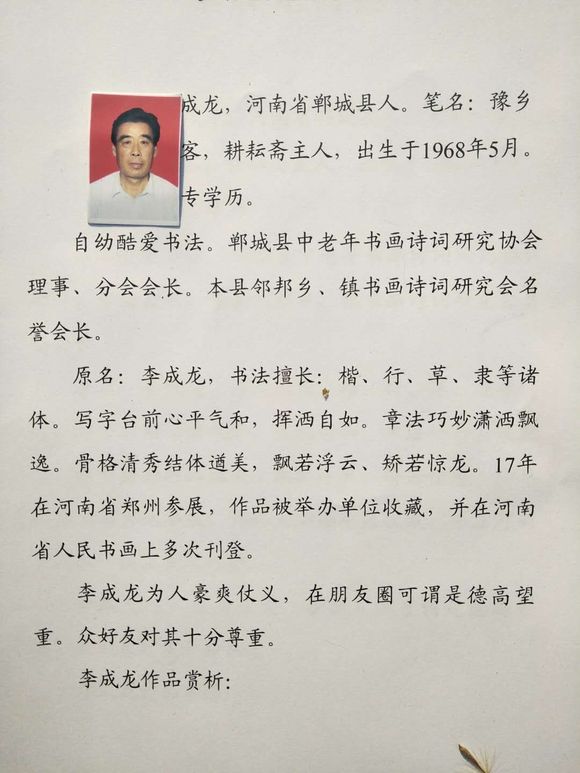 成龙，河南省郸城县人。笔名：豫乡
客，耕耘斋主人，出生于1968年5月。
专学历。
自幼酷爱书法。郸城县中老年书画诗词研究协会
理事、分会会长。本县邻邦乡、镇书画诗词研究会名
誉会长。
原名：李成龙，书法擅长：楷、行、草、隶等诸
体。写字台前心平气和，挥洒自如。章法巧妙潇洒飘
逸。骨格清秀结体遒美，飘若浮云、矫若惊龙。17年
在河南省郑州参展，作品被举办单位收藏，并在河南
省人民书画上多次刊登。
李成龙为人豪爽仗义，在朋友圈可谓是德高望
重。众好友对其十分尊重。
李成龙作品赏析：